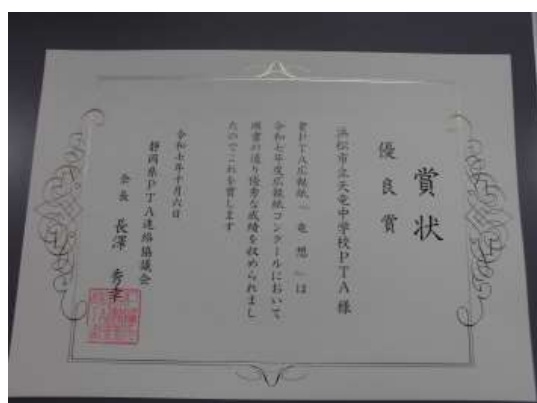 賞状
優良賞
浜松市立天竜中学校PTA 様
貴PTA広報紙「竜想」は
令和七年度広報紙コンクールにおいて
頭書の通り優秀な成績を収められまし
たのでこれを賞します
令和七年十月六日
静岡県PTA連絡協議会
会長 長澤 秀幸